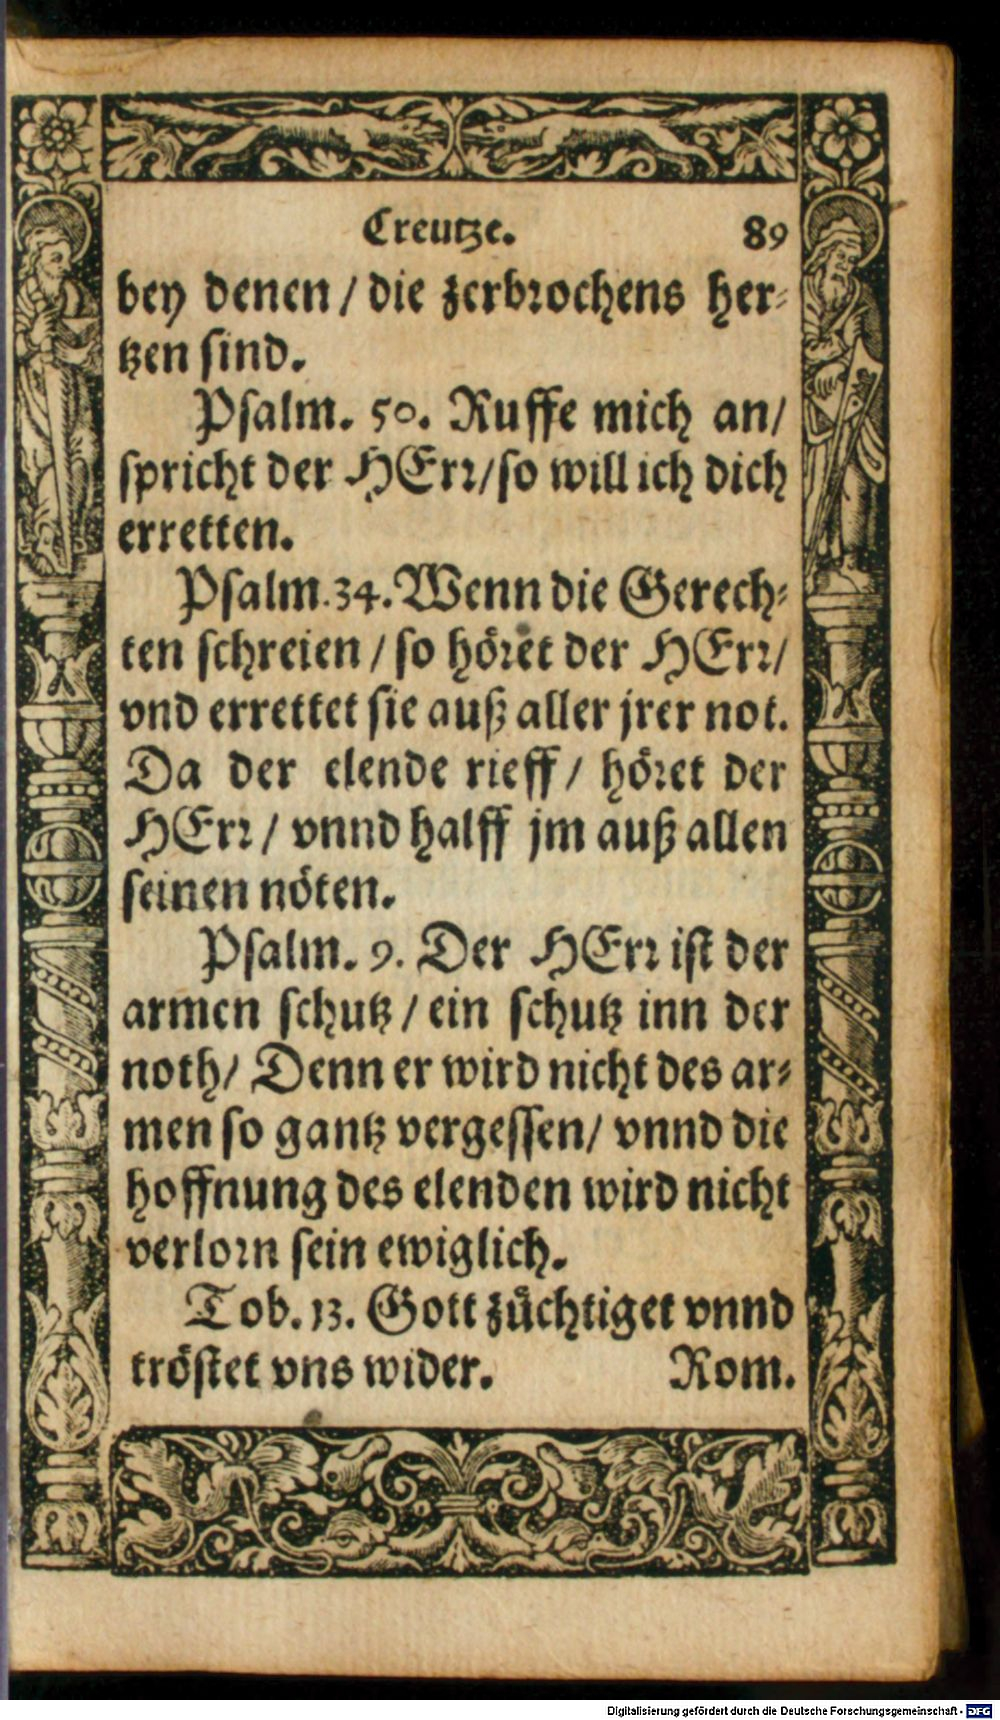 Creutze. 89
bey denen / die zerbrochens her-
tzen sind.
Psalm. 50. Ruffe mich an/
spricht der HErr/so will ich dich
erretten.
Psalm.34.Wenn die Gerech-
ten schreien / so höret der HErr/
vnd errettet sie auß aller jrer not.
Da der elende rieff / höret der
HErr / vnnd halff jm auß allen
seinen nöten.
Psalm. 9. Der HErr ist der
armen schutz / ein schutz inn der
noth/ Denn er wird nicht des ar-
men so gantz vergessen/ vnnd die
hoffnung des elenden wird nicht
verlorn sein ewiglich.
Tob. 13. Gott züchtiget vnnd
tröstet vns wider. Rom.
Digitalisierung gefördert durch die Deutsche Forschungsgemeinschaft - DFG